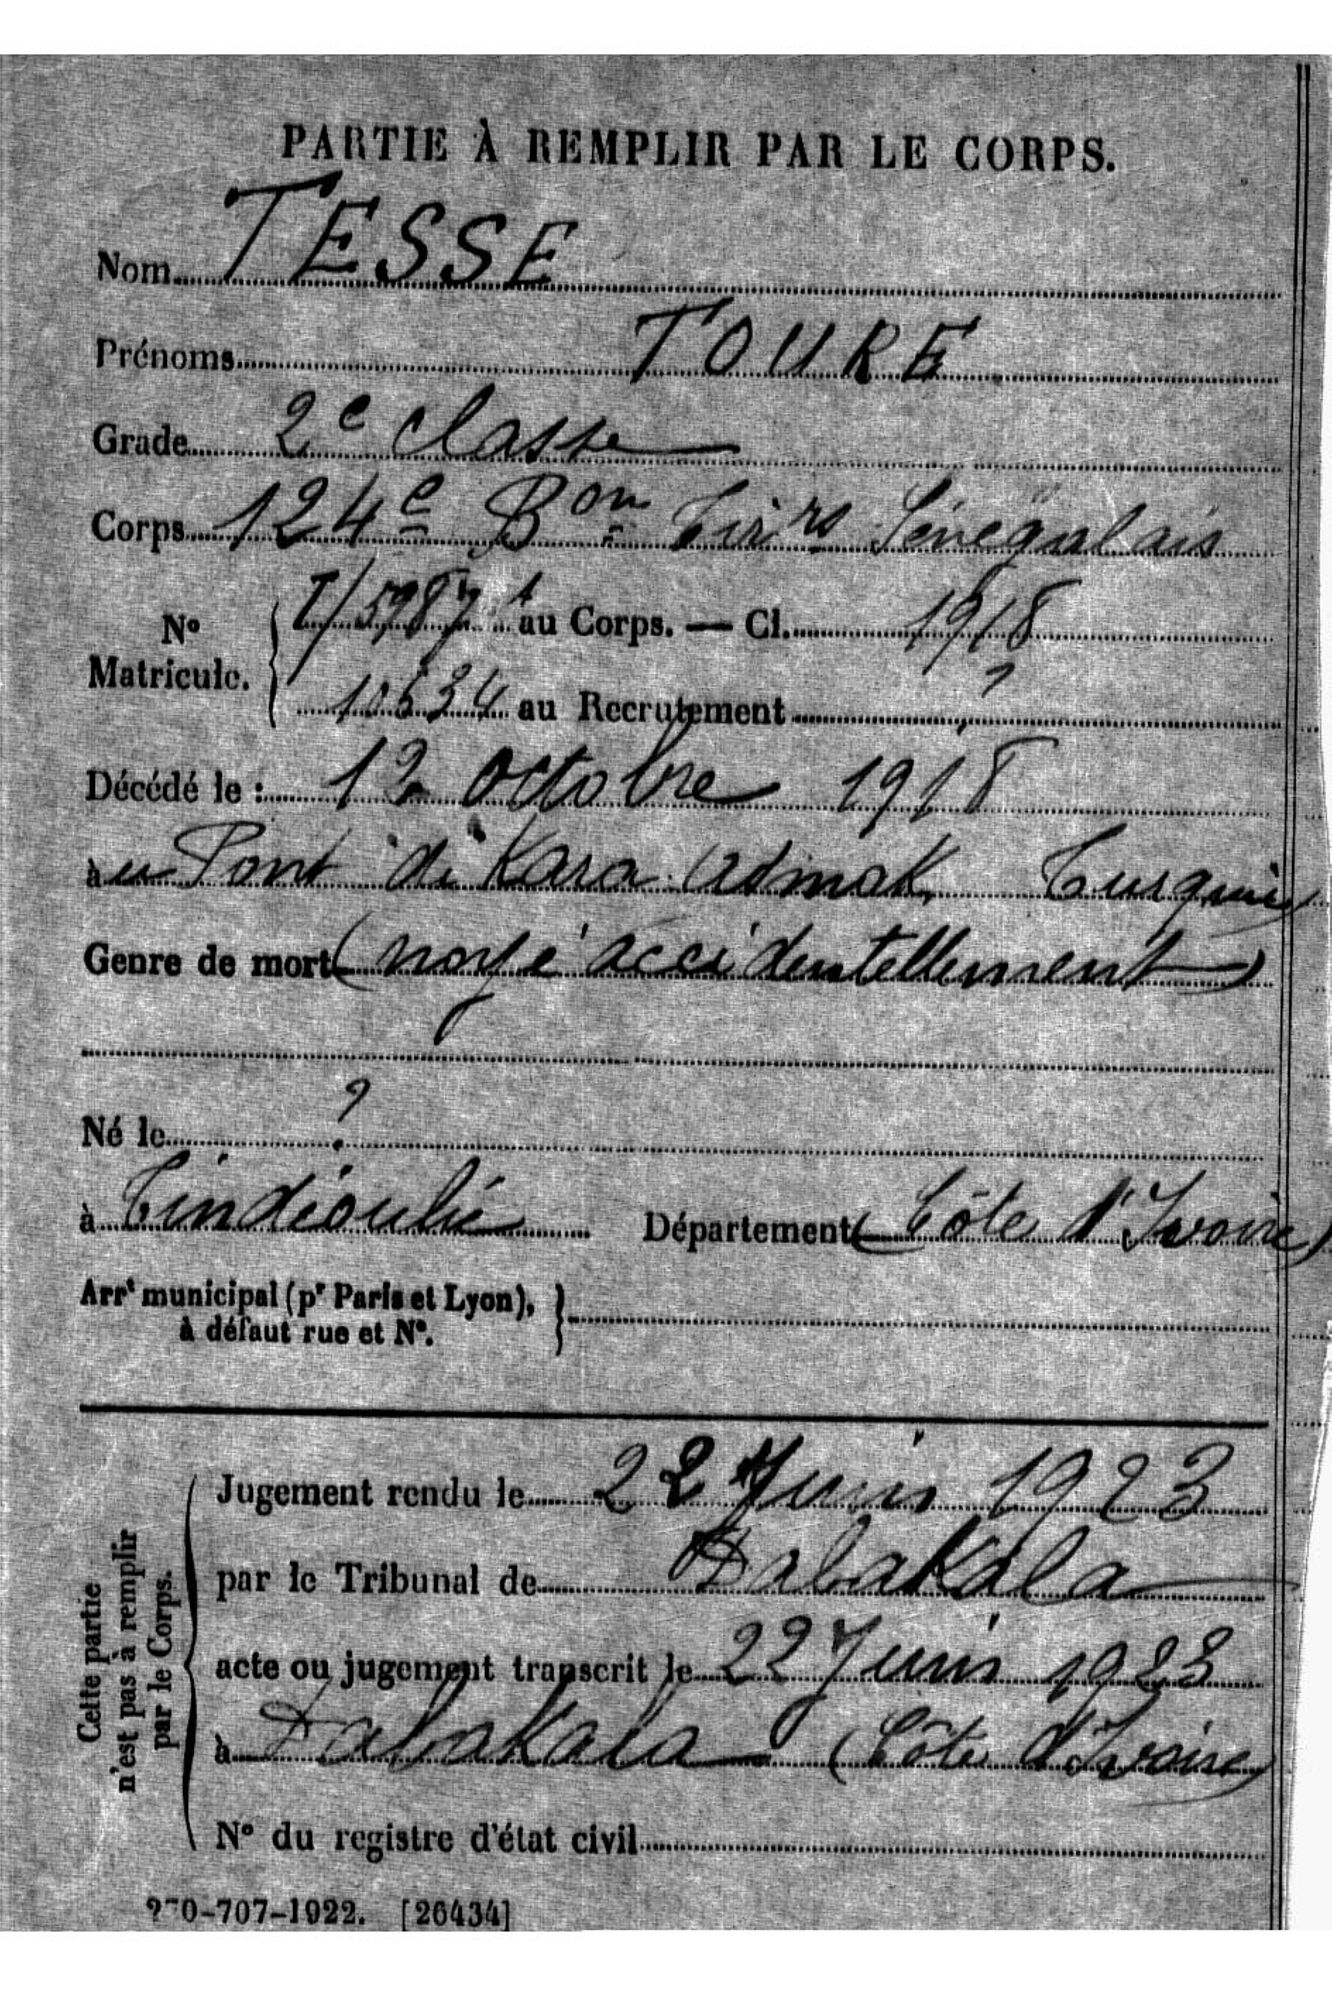 PARTIE À REMPLIR PAR LE CORPS.
Nom TESSE
Prénoms TOURE
Grade 2e classe
Corps 124e Bon Tirrs Sénégalais
No Matricule. T/5987 au Corps. — Cl. 1918
10634 au Recrutement ?
Décédé le : 12 octobre 1918
au Pont de Kara Turquie
Genre de mort (noyé accidentellement)
Né le ?
à Tindéoulié Département (Côte d'Ivoire)
Arrt municipal (pr Paris et Lyon),
à défaut rue et No.
Cette partie
n'est pas à remplir
par le Corps.
Jugement rendu le 22 Juin 1923
par le Tribunal de Dabakala
acte ou jugement transcrit le 22 Juin 1923
à Dabakala (Côte d'Ivoire)
No du registre d'état civil
0-707-1922. [26434]